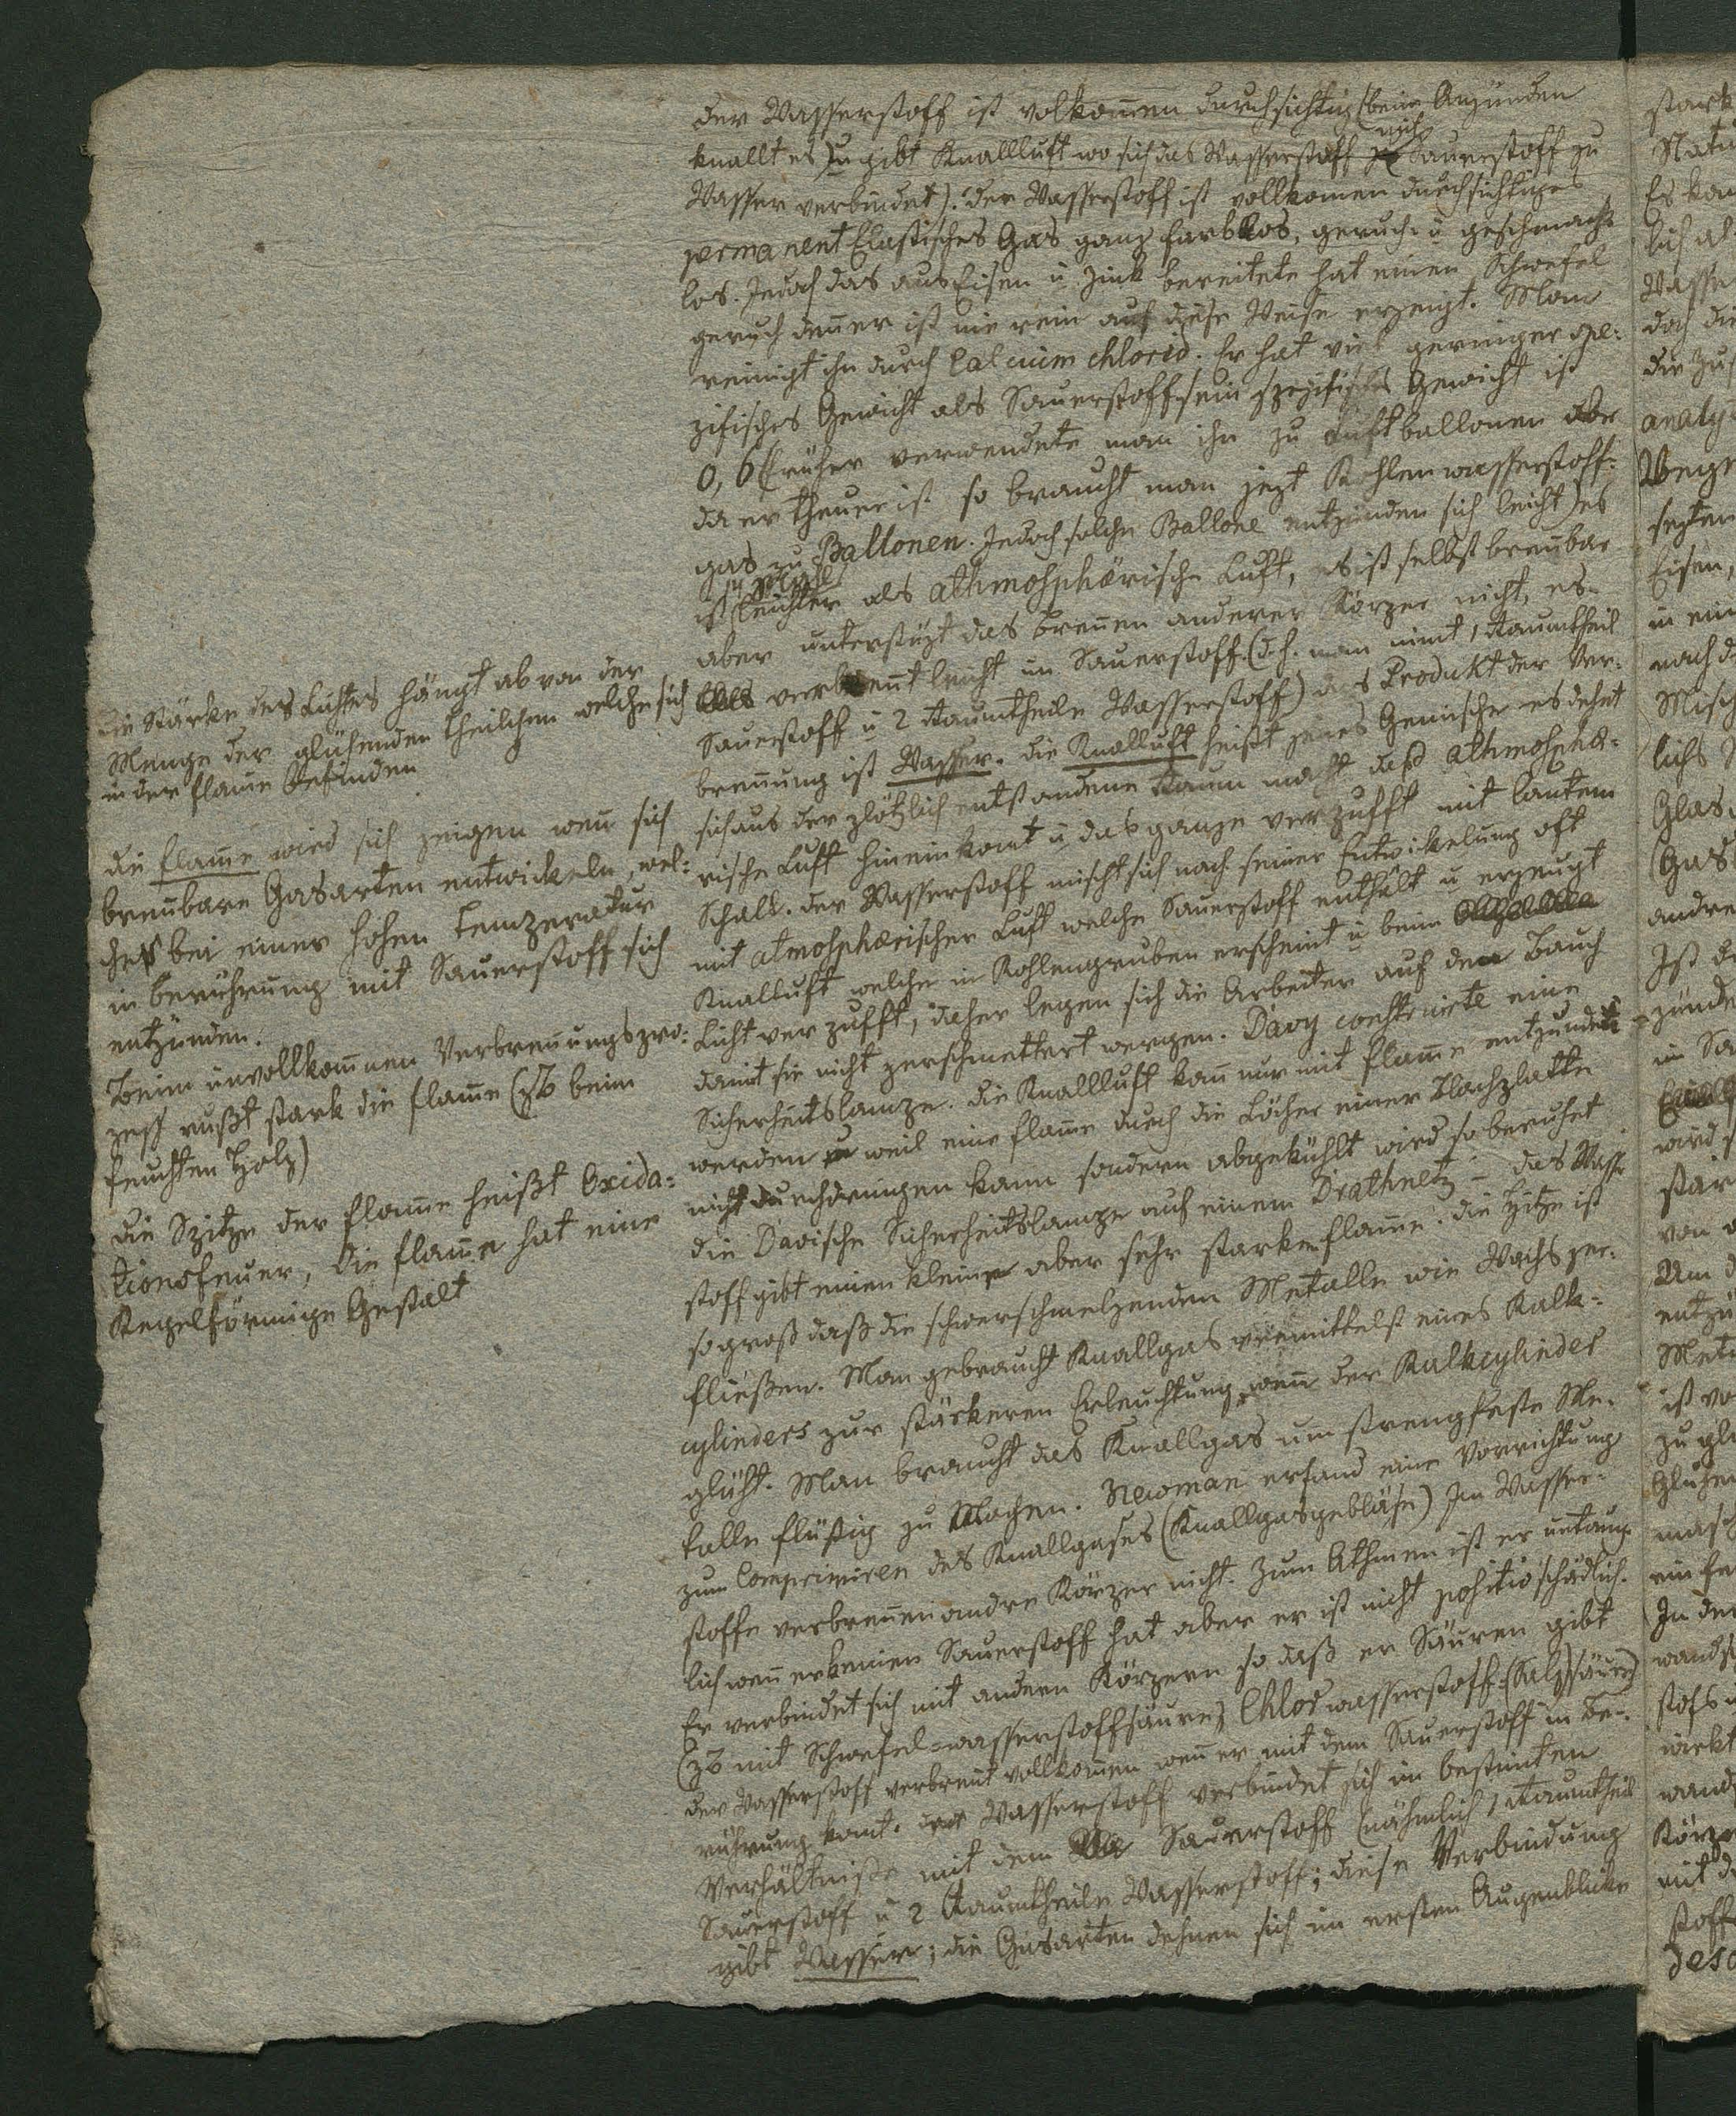 der Wasserstoff ist volkom̄en durchsichtig (beim Anzünden
knallt es) u gibt Knallluft wo sich das Wasserstoff mit Sauerstoff zu
Wasser verbindet). Der Wasserstoff ist vollkomen durchsichtiges
permanent Elastisches Gas ganz farblos, geruch- u geschmack-
los. Jedoch das aus Eisen u Zink bereitete hat einen Schwefel
geruch den̄ er ist nie rein auf diese Weise erzeugt. Man
reinigt ihn durch Calcium chlorid. Er hat viel geringer spe-
zifisches Gewicht als Sauerstoff sein spezifisches Gewicht ist
0,6 (früher verwendete man ihn zu Luftballonen aber
da er theuer ist so braucht man jezt Kohlenwasserstoff-
gas zu Ballonen. Jedoch solche Ballone entzünden sich leicht) es
ist leichter als athmosphærische Luft, es ist selbst bren̄bar
aber unterstüzt das bren̄en anderer Körper nicht, es
verbren̄t leicht im Sauerstoff. (d.h. man nimt 1 Raumtheil
Sauerstoff u 2 Raumtheile Wasserstoff) das Produkt der Ver-
bren̄ung ist Wasser. die Knallluft heißt jenes Gemische es dehnt
sich aus der plötzlich entstandene Raum macht daß athmosphæ-
rische Luft hineinkomt u das ganze verpufft mit lautem
Schall. der Wasserstoff mischt sich nach seiner Entwickelung oft
mit atmosphærischer Luft welche Sauerstoff enthält u erzeugt
Knalluft welche in Kohlengruben erscheint u beim
Licht verpufft, daher legen sich die Arbeiter auf den Bauch
damit sie nicht zerschmettert wergen. Davy conštruirte eine
Sicherheitslampe. die Knallluft kan̄ nur mit Flam̄e entzündet
werden weil eine Flam̄e durch die Löcher einer Blachplatte
nicht durchdringen kann sondern abgekühlt wird so beruhet
die Davische Sicherheitslampe auf einem Drathnetz – das Wasser
stoff gibt einen kleine aber sehr starke Flam̄e. die Hitze ist
so groß daß die schwerschmelzenden Metalle wie Wachs zer-
fließen. Man gebraucht Knallgas vermittelst eines Kalk-
cylinders zur stärkeren Erleuchtung wen̄ der Kalkcylinder
glüht. Man braucht das Knallgas um strengfeste Me-
talle flüßig zu Machen. Newman erfand eine Vorrichtung
zum Comprimiren des Knallgases (Knallgasgebläse) Im Wasser-
stoffe verbren̄en andre Körper nicht. Zum Athmen ist er untaug-
lich wen̄ er keinen Sauerstoff hat aber er ist nicht positiv schädlich.
Er verbindet sich mit andern Körpern so daß er Säuren gibt
(zB mit Schwefel-wasserstoffsäure) Chlorwasserstoff (Salzsäure)
der Wasserstoff verbrent vollkom̄en wen̄ er mit dem Sauerstoff in Be-
rührung komt. der Wasserstoff verbindet sich im bestimten
Verhältniße mit dem Sauerstoff (nähmlich 1 Raumtheil
Sauerstoff u 2 Raumtheile Wasserstoff; diese Verbindung
gibt Wasser; die Gasarten dehnen sich im ersten Augenblicke
die Stärke des Lichtes hängt ab von der
Menge der glühenden Theilchen welche sich
in der Flam̄e Befinden
die Flam̄e wird sich zeigen wen̄ sich
bren̄bare Gasarten entwickeln, wel-
ches bei einer hohen Temperatur
in berührung mit Sauerstoff sich
entzünden.
Beim unvollkom̄nen Verbren̄ungspro-
zeß rußt stark die Flam̄e (zB beim
feuchten Holz)
die Spitze der Flam̄e heißt Oxida-
tionsfeuer, die Flam̄e hat eine
Kegelförmige Gestalt